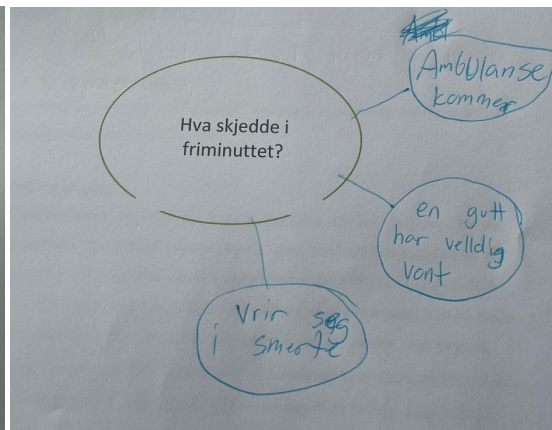 Hva skjedde i
friminuttet?
Ambulanse
kommer
en gutt
har velldig
vont
Vrir seg
i smerte